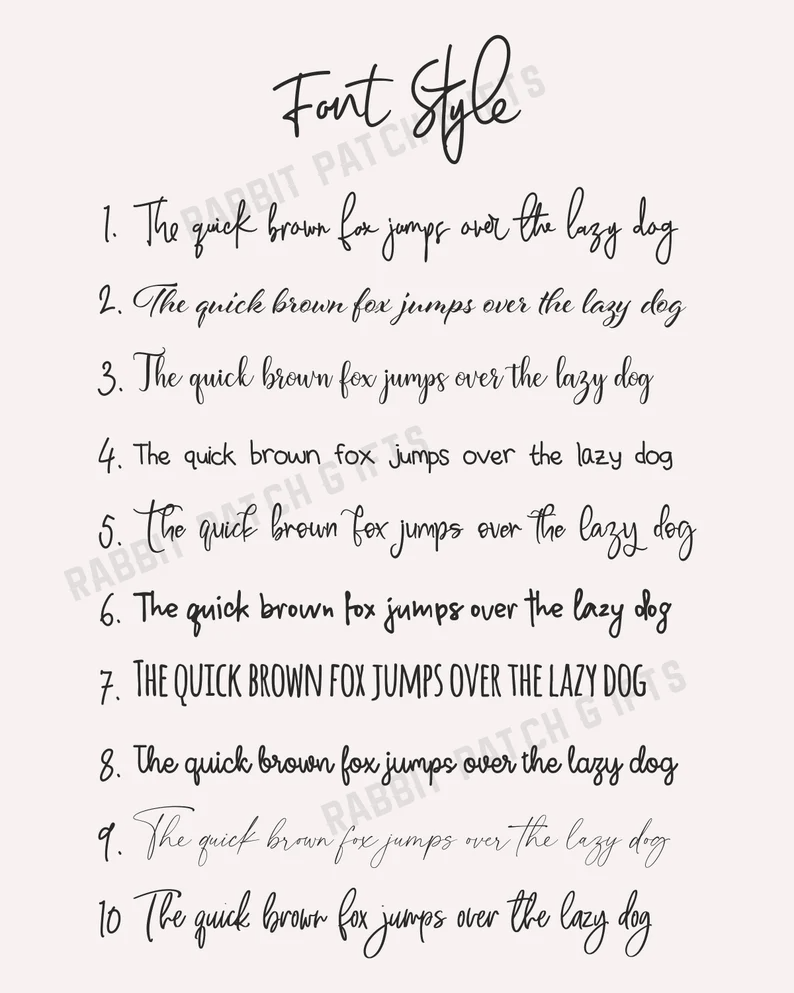 Font Style
RABBIT PATCH GIFTS
1. The quick brown fox jumps over the lazy dog
2. The quick brown fox jumps over the lazy dog
3. The quick brown fox jumps over the lazy dog
4. The quick brown fox jumps over the lazy dog
RABBIT PATCH GIFTS
5. The quick brown fox jumps over the lazy dog
6. The quick brown fox jumps over the lazy dog
7. THE QUICK BROWN FOX JUMPS OVER THE LAZY DOG
RABBIT PATCH GIFTS
8. The quick brown fox jumps over the lazy dog
9. The quick brown fox jumps over the lazy dog
10 The quick brown fox jumps over the lazy dog